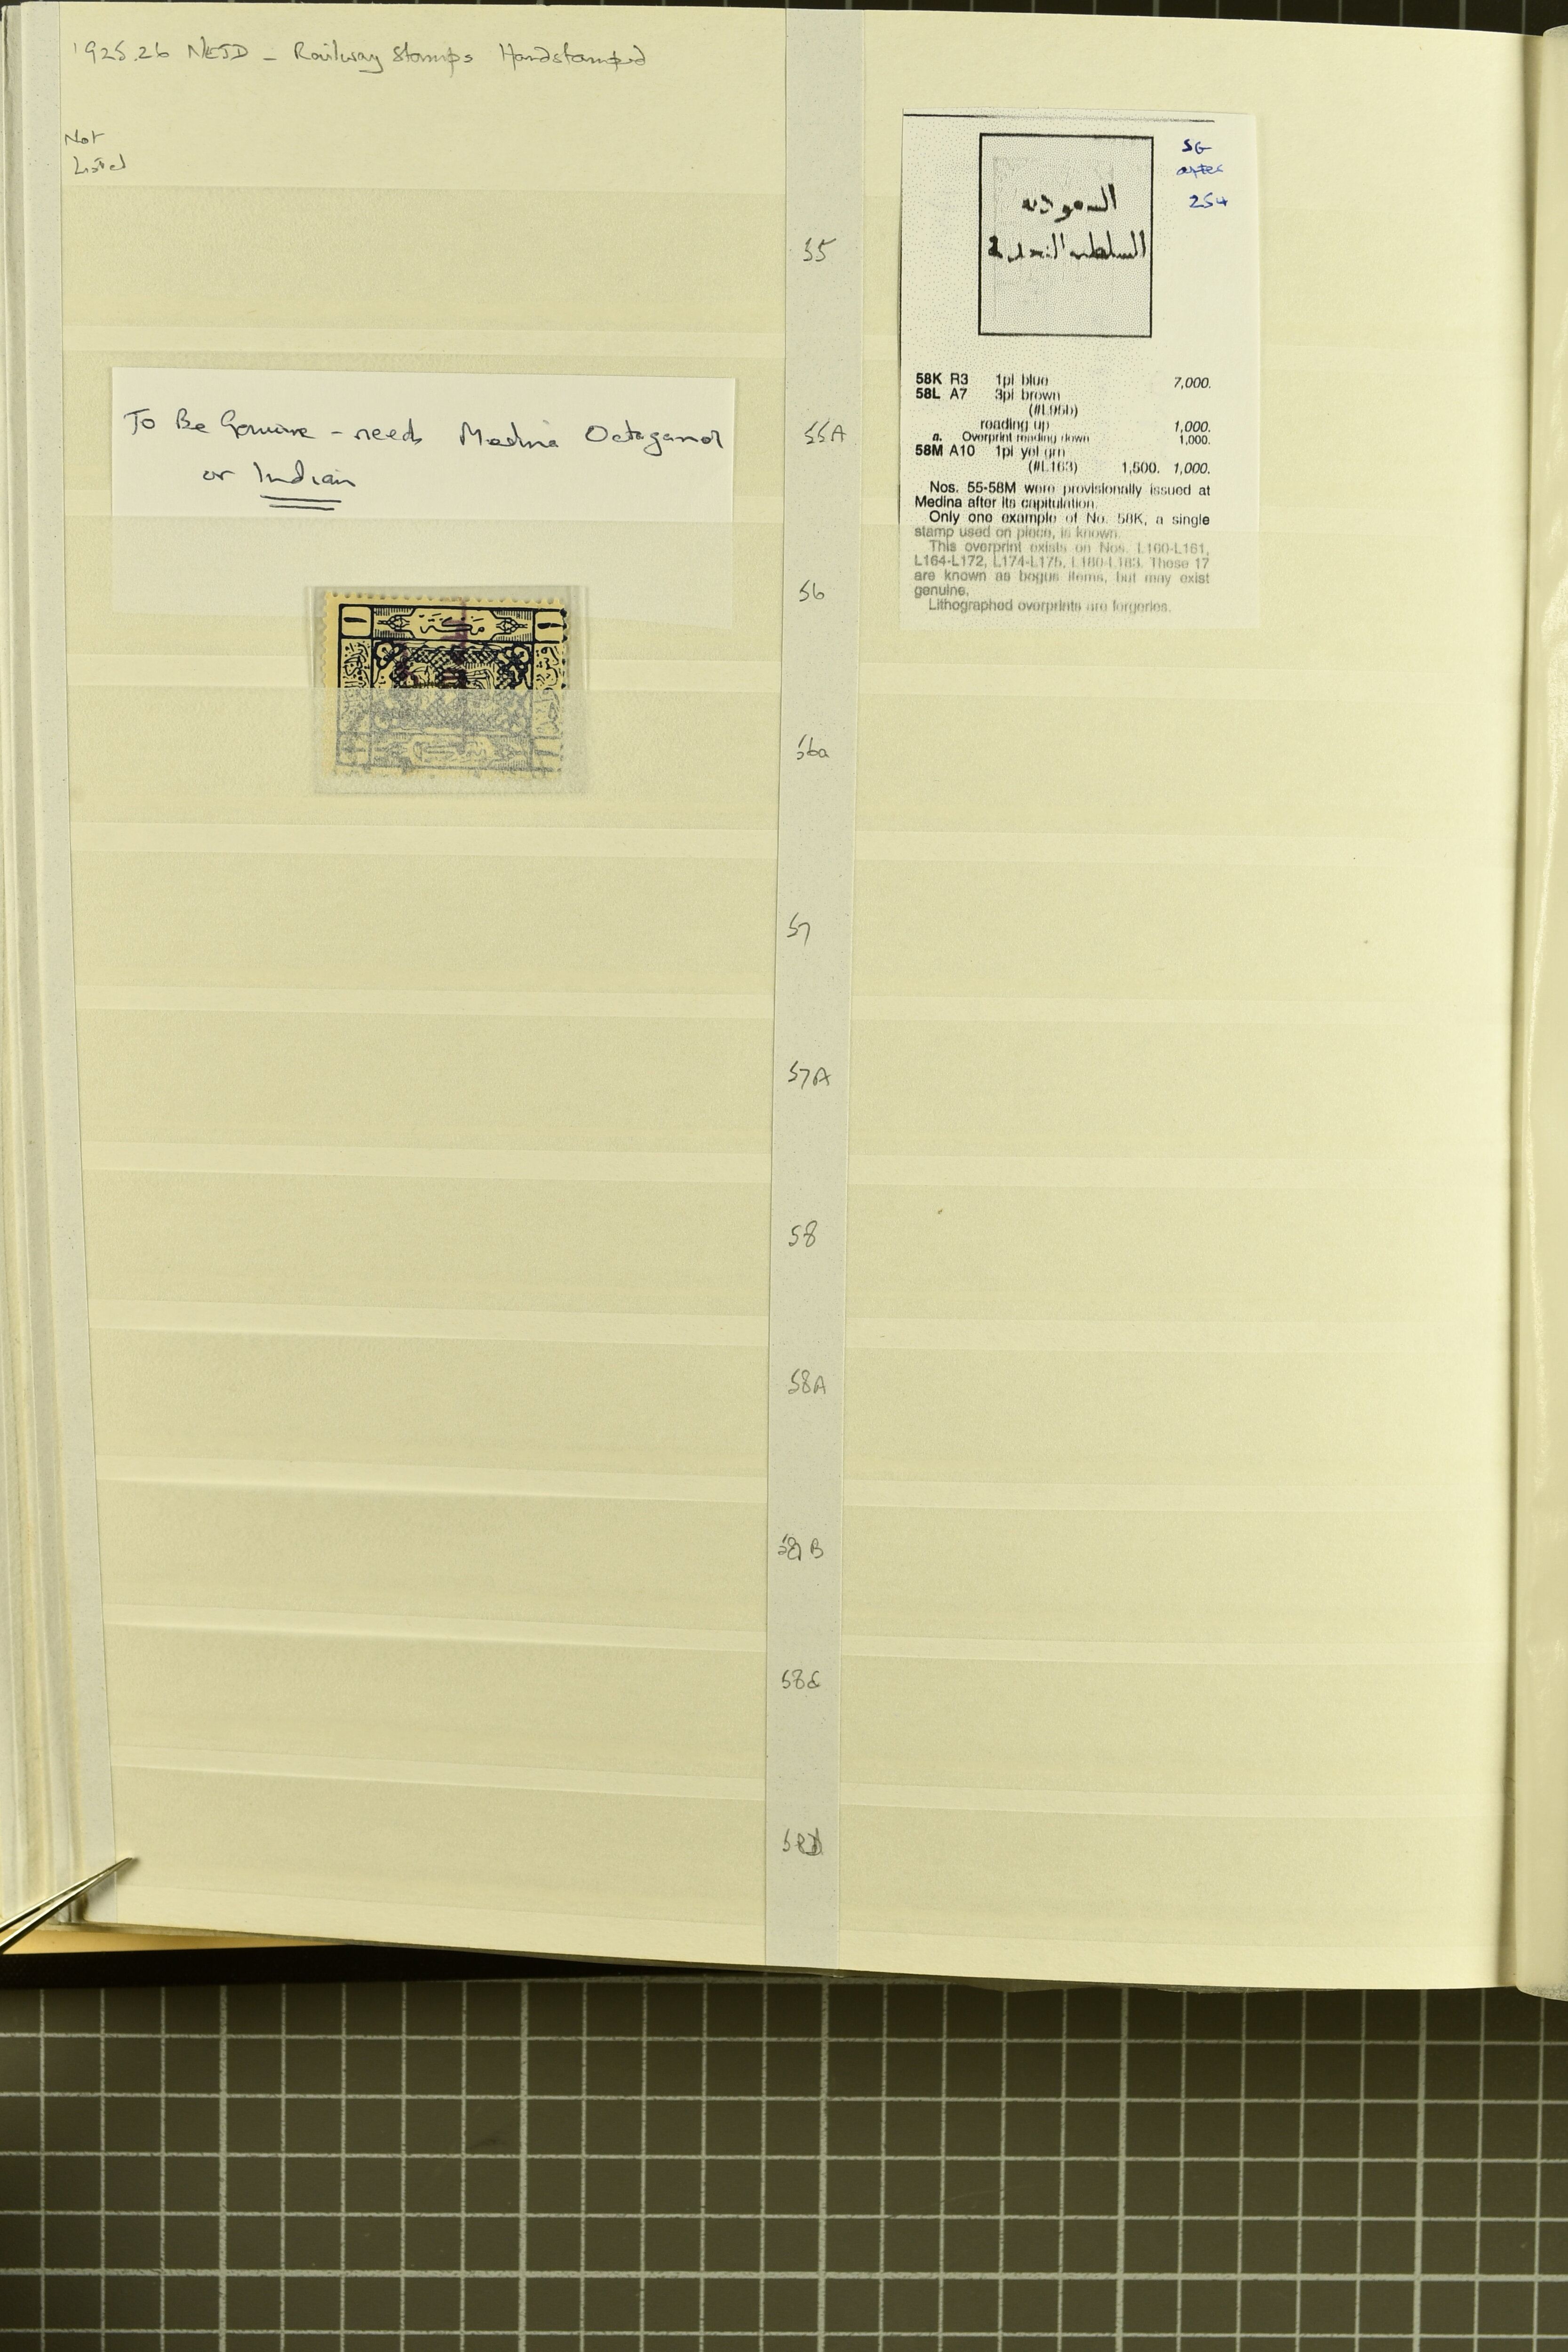 1925.26 NEJD - Railway Stamps Handstamped
Not
Listed
To Be Genuine - needs Medina Octaganol
or Indian
مكة
55
55A
56
56a
57
57A
58
58A
58B
58c
58D
SG
after
254
السعودية
السلطنة النجدية
58K R3 1pi blue 7,000.
58L A7 3pi brown
(#L95b)
reading up 1,000.
a. Overprint reading down 1,000.
58M A10 1pi yel grn
(#L163) 1,500. 1,000.
Nos. 55-58M were provisionally issued at
Medina after its capitulation.
Only one example of No. 58K, a single
stamp used on piece, is known.
This overprint exists on Nos. L160-L161,
L164-L172, L174-L175, L180-L183. These 17
are known as bogus items, but may exist
genuine.
Lithographed overprints are forgeries.